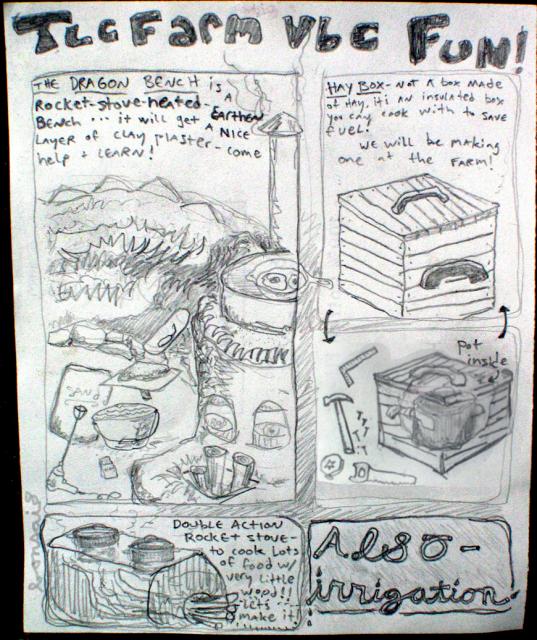 TLC FARM VBC FUN!
THE DRAGON BENCH is A
Rocket-stove-heated-EARTHEN
BENCH ... it will get A NICE
LAYER OF CLAY PLASTER - come
help & LEARN!
HAY BOX - NOT A BOX MADE
OF HAY, it's AN INSULATED BOX
you can cook with to SAVE
FUEL!
WE will be making
ONE AT the FARM!
Pot
inside
SAND
DOUBLE ACTION
ROCKET STOVE -
to cook Lots
of food w/
very little
wood!!
Let's
make it!
Also -
irrigation